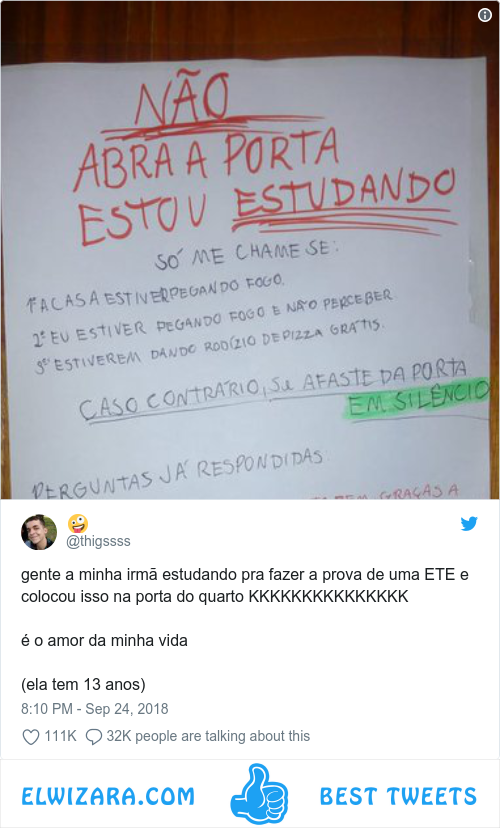 NÃO
ABRA A PORTA
ESTOU ESTUDANDO
SÓ ME CHAME SE:
1º A CASA ESTIVER PEGANDO FOGO.
2º EU ESTIVER PEGANDO FOGO E NÃO PERCEBER
3º ESTIVEREM DANDO RODÍZIO DE PIZZA GRÁTIS.
CASO CONTRÁRIO, SE AFASTE DA PORTA
EM SILÊNCIO
PERGUNTAS JÁ RESPONDIDAS
BEM, GRAÇAS A
@thigssss
gente a minha irmã estudando pra fazer a prova de uma ETE e
colocou isso na porta do quarto KKKKKKKKKKKKKKK
é o amor da minha vida
(ela tem 13 anos)
8:10 PM - Sep 24, 2018
111K 32K people are talking about this
ELWIZARA.COM BEST TWEETS